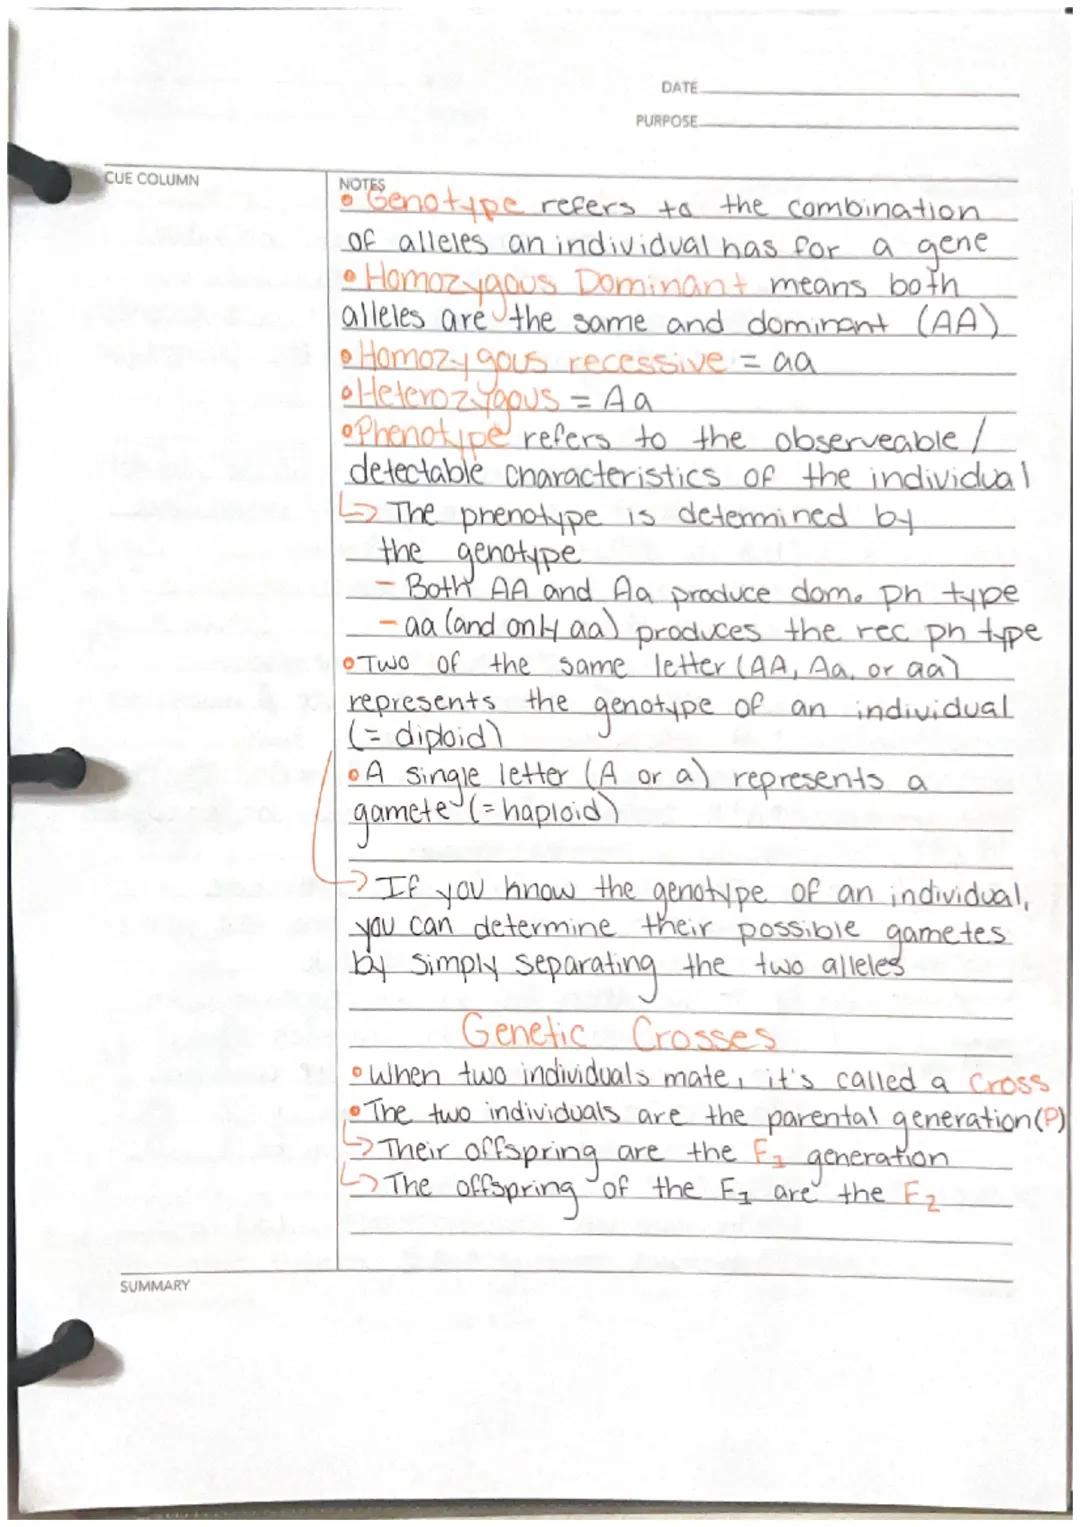 DATE
PURPOSE
CUE COLUMN
NOTES
• Genotype refers to the combination
of alleles an individual has for a gene
• Homozygous Dominant means both
alleles are the same and dominant (AA)
• Homozygous recessive = aa
• Heterozygous = Aa
• Phenotype refers to the observeable/
detectable characteristics of the individual
↳ The phenotype is determined by
the genotype
- Both AA and Aa produce dom. ph type
- aa (and only aa) produces the rec ph type
• Two of the same letter (AA, Aa, or aa)
represents the genotype of an individual
(= diploid)
• A single letter (A or a) represents a
gamete (= haploid)
→ If you know the genotype of an individual,
you can determine their possible gametes
by simply separating the two alleles
Genetic Crosses
• When two individuals mate, it's called a Cross
• The two individuals are the parental generation (P)
↳ Their offspring are the F1 generation
↳ The offspring of the F1 are the F2
SUMMARY